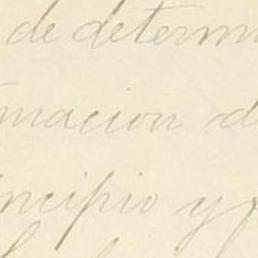 de determi
macion d
ncipio y f